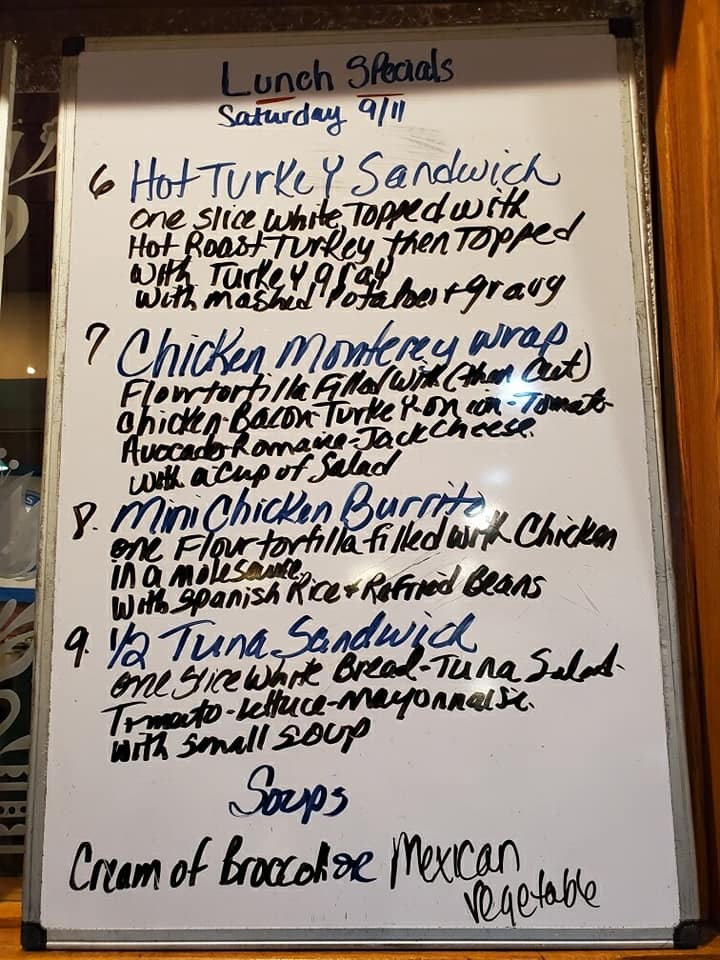 Lunch Specials
Saturday 9/11
6 Hot Turkey Sandwich
one slice white Topped with
Hot Roast Turkey then Topped
with Turkey gray
with mashed Potatoes + gravy
7 Chicken Monterey wrap
Flour tortilla Filled with (then Cut)
Chicken-Bacon-Turkey-onion-Tomato-
Avocado-Romaine-Jack Cheese.
with a cup of Salad
8. Mini Chicken Burrito
one Flour tortilla filled with Chicken
in a mole sauce,
with Spanish Rice + Refried Beans
9. 1/2 Tuna Sandwich
one slice white Bread-Tuna Salad-
Tomato-Lettuce-mayonnaise.
with small soup
Soups
Cream of Broccoli or Mexican
vegetable